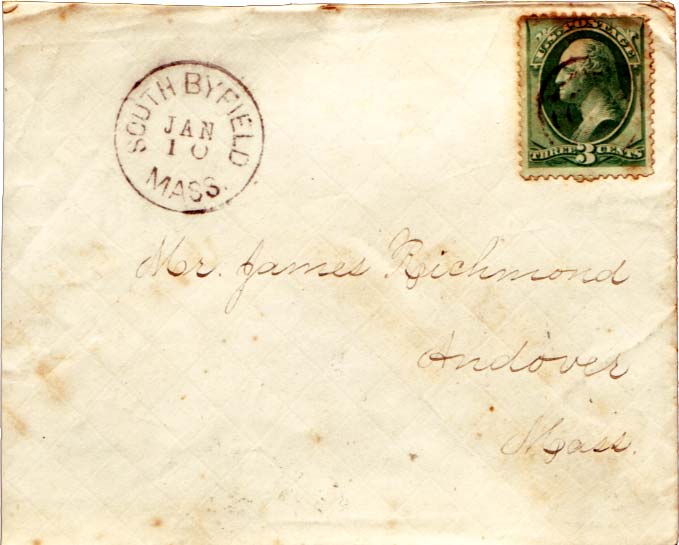 SOUTH BYFIELD
JAN
10
MASS.
U.S. POSTAGE
THREE 3 CENTS
Mr. James Richmond
Andover
Mass.